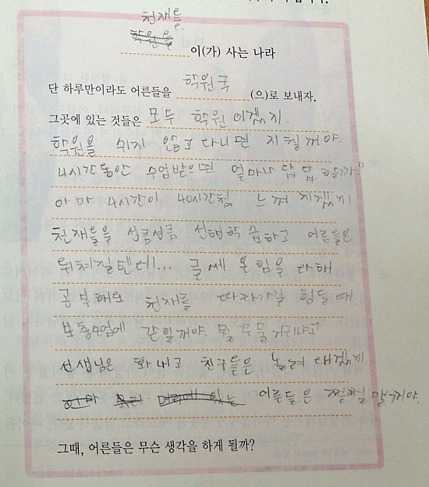 천재들
이(가) 사는 나라
단 하루만이라도 어른들을 학원국 (으)로 보내자.
그곳에 있는 것들은 모두 학원이겠지.
학원을 쉬지 않고 다니면 지칠꺼야.
4시간동안 수업받으면 얼마나 답답
아마 4시간이 40시간처럼 느껴지겠지
천재들은 성큼성큼 선행학습하고 어른들은
뒤쳐질텐데... 글쎄 온힘을 다해
공부해도 천재를 따라가기 힘들 때
보충수업에 갇힐꺼야
선생님은 화내고 친구들은 놀려대겠지
어른들은 말꺼야.
그때, 어른들은 무슨 생각을 하게 될까?